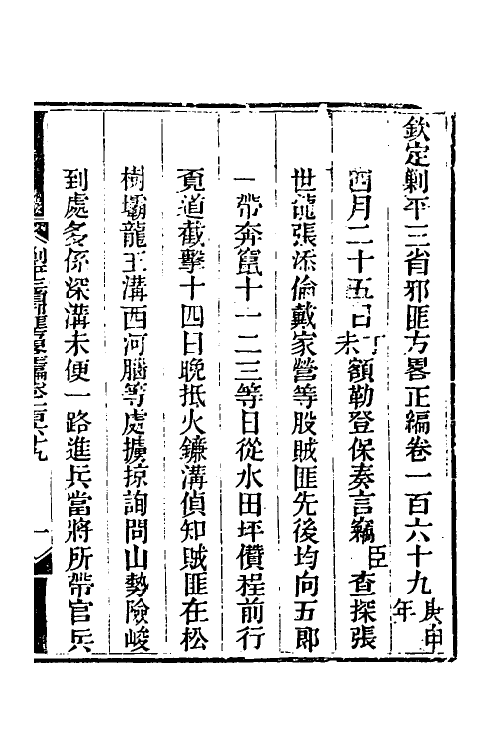 欽定剿平三省邪匪方畧正編卷一百六十九庚申年
四月二十五日丁未額勒登保奏言竊臣查探張
世龍張添倫戴家營等股賊匪先後均向五郎
一帶奔竄十一二三等日從水田坪儹程前行
覓道截擊十四日晚抵火鐮溝偵知賊匪在松
樹壩龍王溝西河腦等處擄掠詢問山勢險峻
到處多係深溝未便一路進兵當將所帶官兵